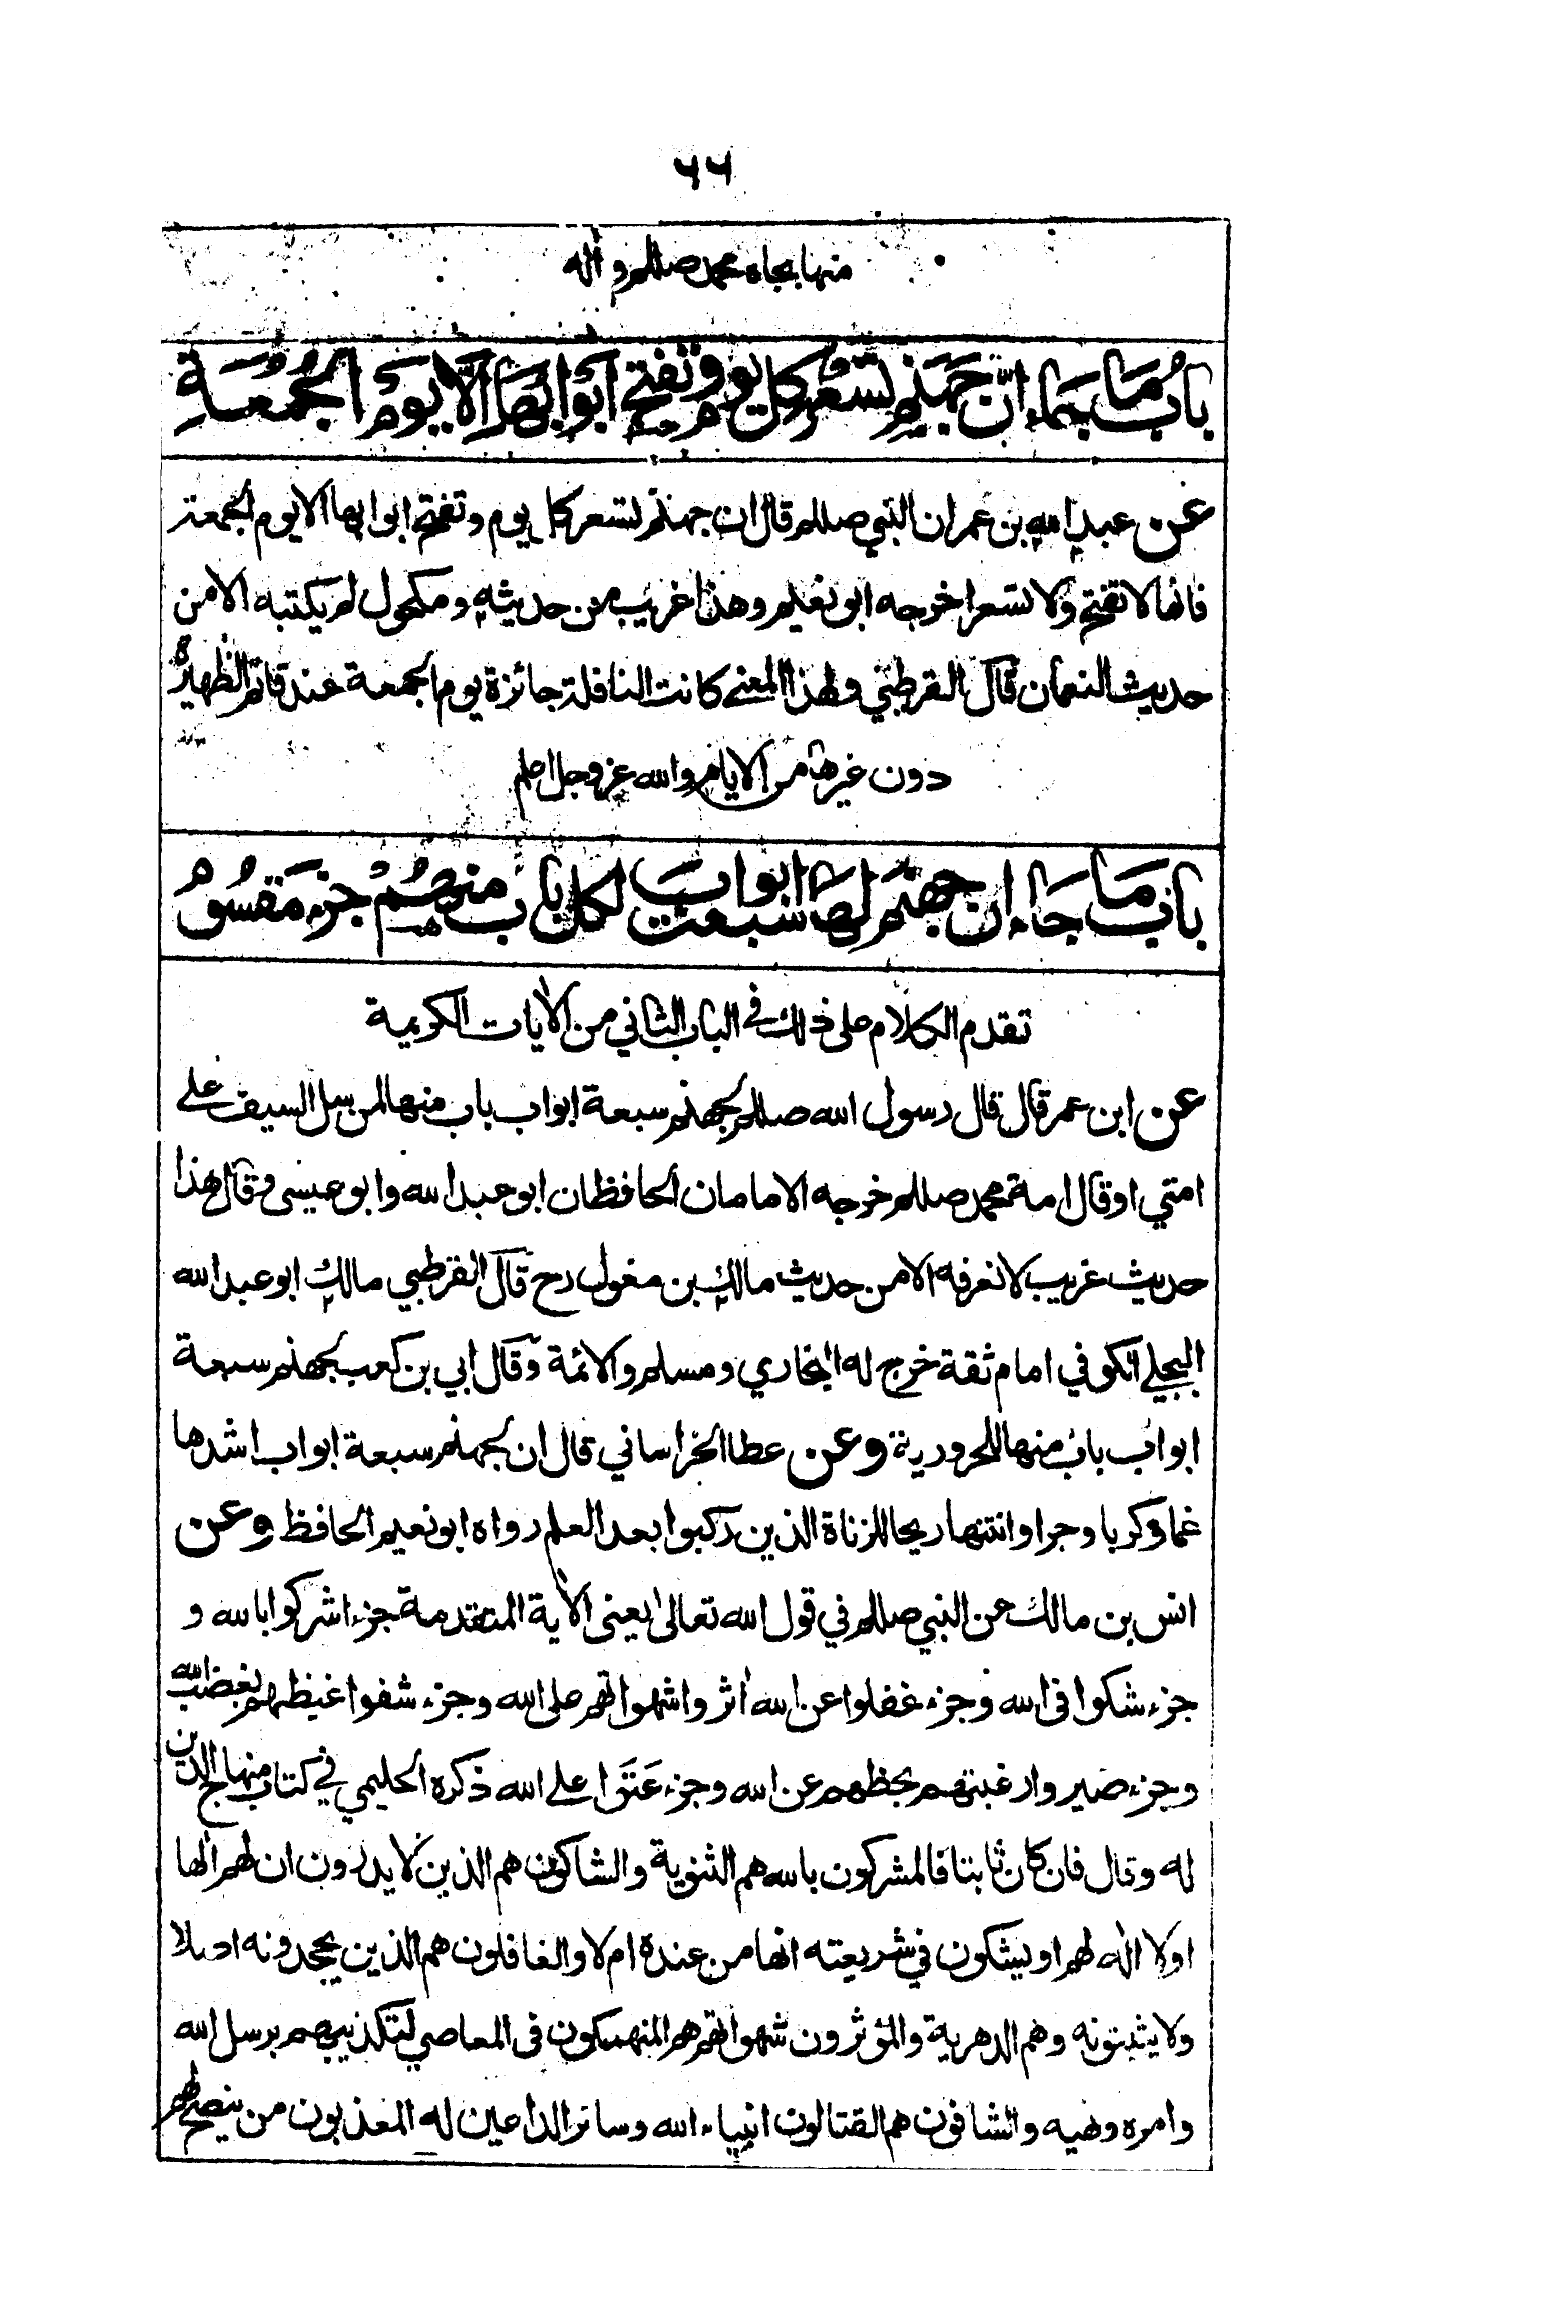 ٦٦
منها بجاه محمد صللم وآله
باب ما جاء ان جهنم تسعر كل يوم وتفتح ابوابها الا يوم الجمعة
عن عبد الله بن عمر ان النبي صللم قال ان جهنم تسعر كل يوم وتفتح ابوابها الا يوم الجمعة
فانها لا تفتح ولا تسعر اخرجه ابو نعيم وهذا غريب من حديثه ومكحول لم يكتبه الا من
حديث النعمان قال القرطبي ولهذا المعنى كانت النافلة جائزة يوم الجمعة عند قائم الظهيرة
دون غيرها من الايام والله عز وجل اعلم
باب ما جاء ان جهنم لها سبعة ابواب لكل باب منهم جزء مقسوم
تقدم الكلام على ذلك في الباب الثاني من الآيات الكريمة
عن ابن عمر قال قال رسول الله صللم لجهنم سبعة ابواب باب منها لمن سل السيف على
امتي او قال امة محمد صللم خرجه الامامان الحافظان ابو عبد الله وابو عيسى وقال هذا
حديث غريب لا نعرفه الا من حديث مالك بن مغول رح قال القرطبي مالك ابو عبد الله
البجلي الكوفي امام ثقة خرج له البخاري ومسلم والائمة وقال ابي بن كعب لجهنم سبعة
ابواب باب منها للحرورية وعن عطا الخراساني قال ان لجهنم سبعة ابواب اشدها
غما وكربا وحرا وانتنها ريحا للزناة الذين ركبوا بعد العلم رواه ابو نعيم الحافظ وعن
انس بن مالك عن النبي صللم في قول الله تعالى يعنى الآية المتقدمة جزء اشركوا بالله و
جزء شكوا فى الله وجزء غفلوا عن الله اثروا شهواتهم على الله وجزء شفوا غيظهم بغضب الله
وجزء صيروا رغبتهم بحظهم عن الله وجزء عتوا على الله ذكره الحليمي في كتاب منهاج الدين
له وقال فان كان ثابتا فالمشركون بالله هم الثنوية والشاكون هم الذين لا يدرون ان لهم الها
او لا اله لهم او يشكون في شريعته انها من عنده ام لا والغافلون هم الذين يجحدونه اصلا
ولا يثبتونه وهم الدهرية والمؤثرون شهواتهم هم المنهمكون فى المعاصي لتكذيبهم برسل الله
وامره ونهيه والشافون هم القتالون انبياء الله وسائر الداعين له المعذبون من ينصح لهم